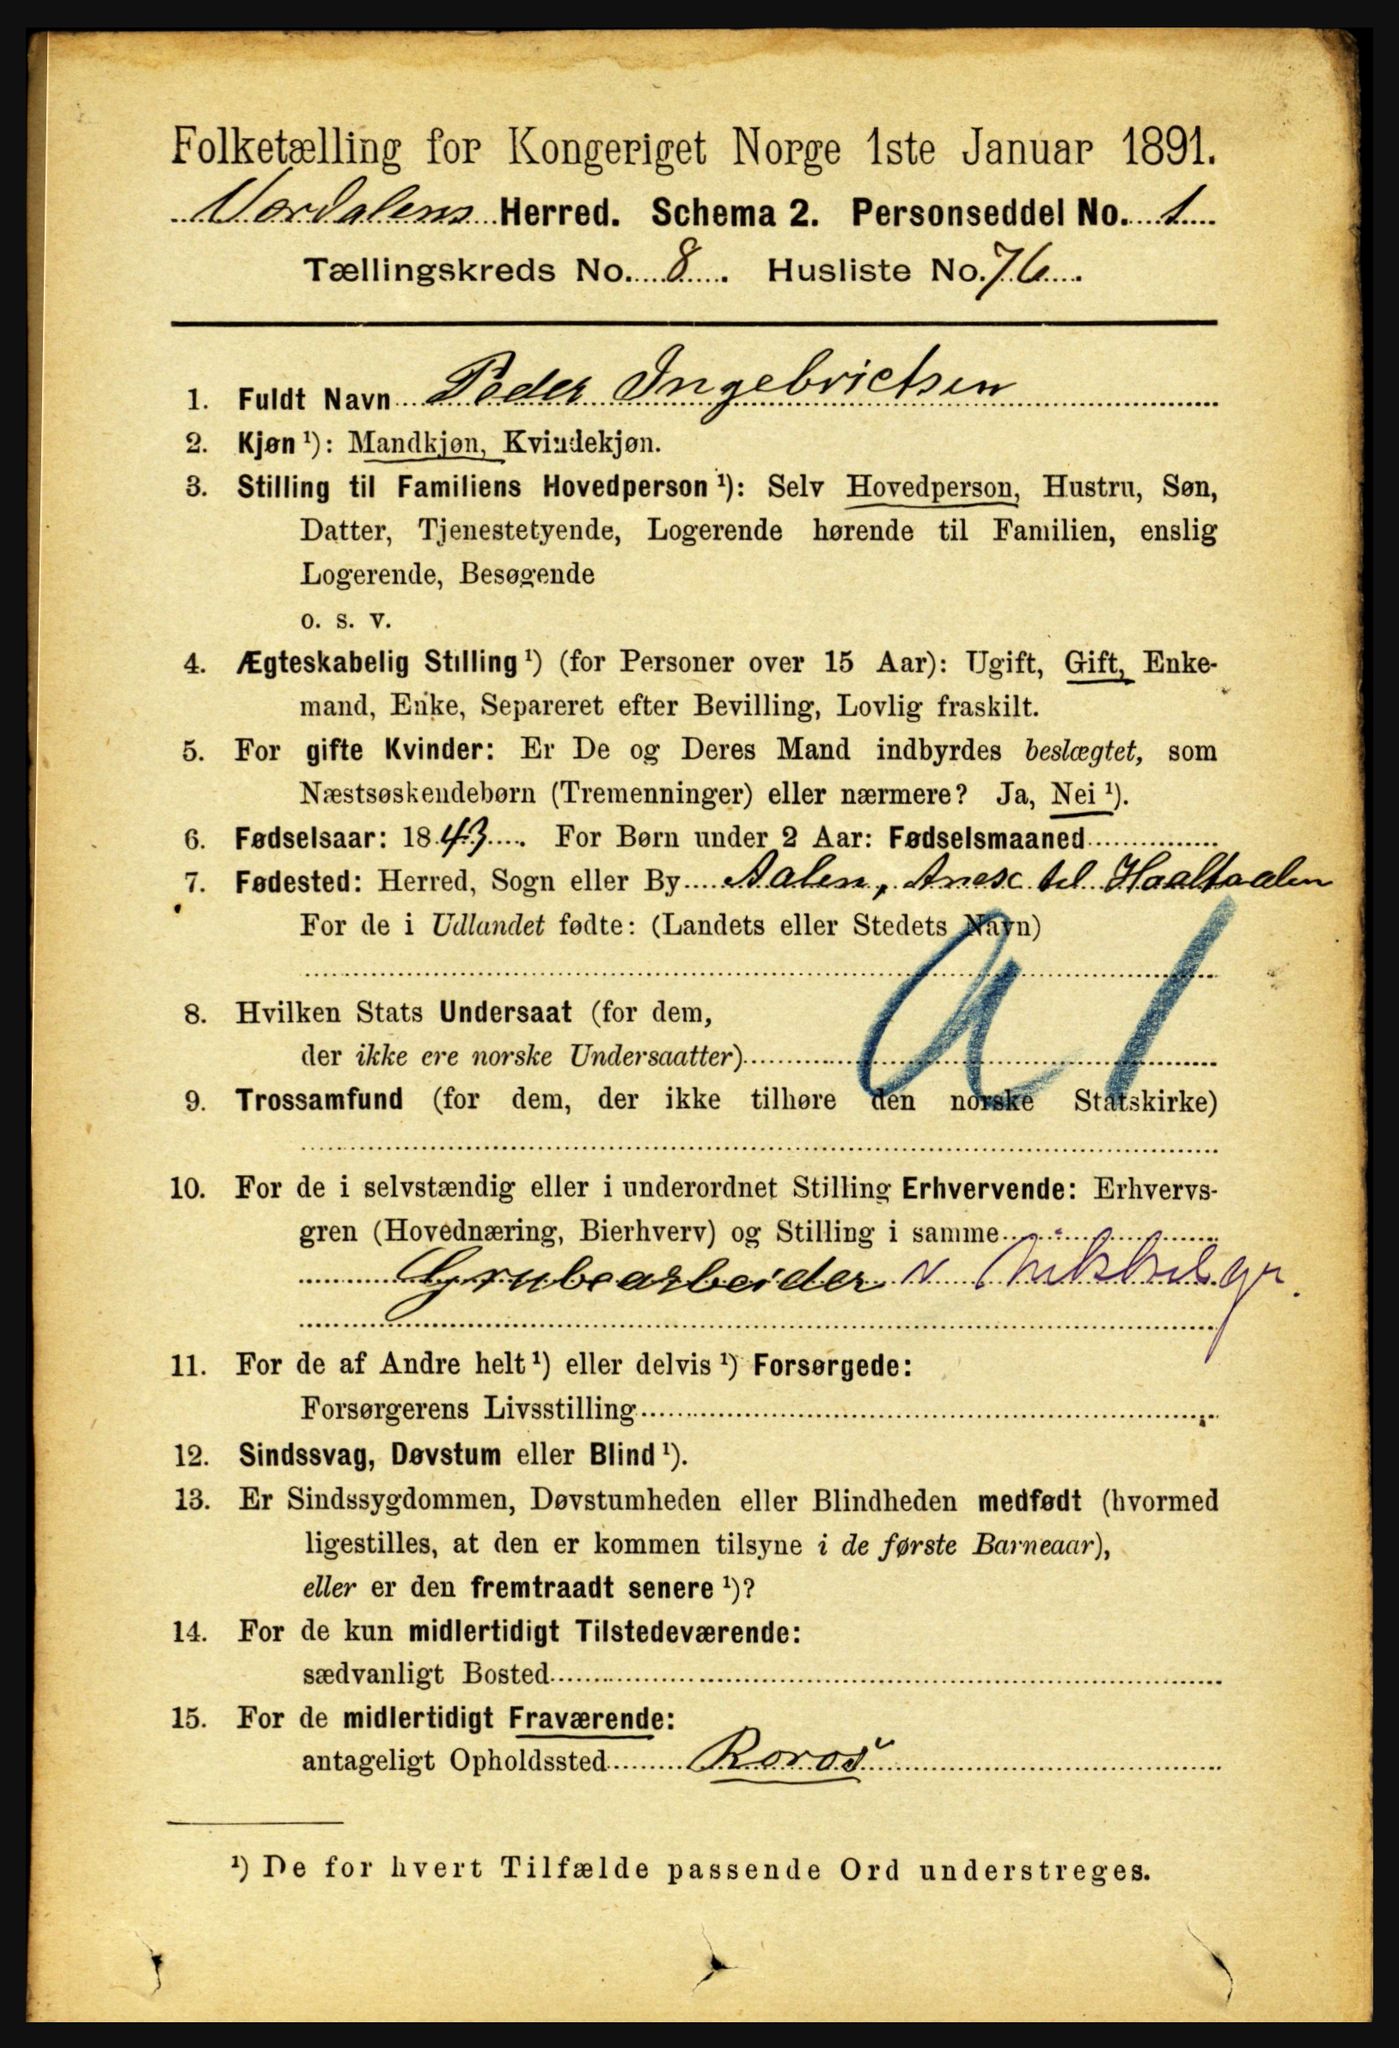 Folketælling for Kongeriget Norge 1ste Januar 1891.
Værdalens Herred. Schema 2. Personseddel No. 1
Tællingskreds No. 8. Husliste No. 76.
1. Fuldt Navn Peder Ingebrictsen
2. Kjøn ¹): Mandkjøn, Kvindekjøn.
3. Stilling til Familiens Hovedperson ¹): Selv Hovedperson, Hustru, Søn,
Datter, Tjenestetyende, Logerende hørende til Familien, enslig
Logerende, Besøgende
o. s. v.
4. Ægteskabelig Stilling ¹) (for Personer over 15 Aar): Ugift, Gift, Enke-
mand, Enke, Separeret efter Bevilling, Lovlig fraskilt.
5. For gifte Kvinder: Er De og Deres Mand indbyrdes beslægtet, som
Næstsøskendebørn (Tremenninger) eller nærmere? Ja, Nei ¹).
6. Fødselsaar: 1843. For Børn under 2 Aar: Fødselsmaaned
7. Fødested: Herred, Sogn eller By Aalen, Anex til Haaltaalen
For de i Udlandet fødte: (Landets eller Stedets Navn)
a 1
8. Hvilken Stats Undersaat (for dem,
der ikke ere norske Undersaatter)
9. Trossamfund (for dem, der ikke tilhøre den norske Statskirke)
10. For de i selvstændig eller i underordnet Stilling Erhvervende: Erhvervs-
gren (Hovednæring, Bierhverv) og Stilling i samme
Grubearbeider v. Nikkelgr.
11. For de af Andre helt ¹) eller delvis ¹) Forsørgede:
Forsørgerens Livsstilling
12. Sindssvag, Døvstum eller Blind ¹).
13. Er Sindssygdommen, Døvstumheden eller Blindheden medfødt (hvormed
ligestilles, at den er kommen tilsyne i de første Barneaar),
eller er den fremtraadt senere ¹)?
14. For de kun midlertidigt Tilstedeværende:
sædvanligt Bosted
15. For de midlertidigt Fraværende:
antageligt Opholdssted Roros
¹) De for hvert Tilfælde passende Ord understreges.